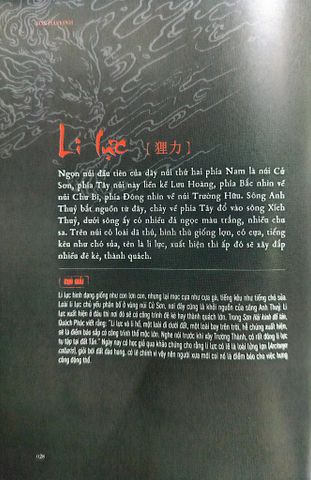 Li lực [狸力]
Ngọn núi đầu tiên của dãy núi thứ hai phía Nam là núi Cử
Sơn, phía Tây núi này liền kề Lưu Hoàng, phía Bắc nhìn về
núi Chư Bì, phía Đông nhìn về núi Trường Hữu. Sông Anh
Thuỷ bắt nguồn từ đây, chảy về phía Tây đổ vào sông Xích
Thuỷ, dưới sông ấy có nhiều đá ngọc màu trắng, nhiều chu
sa. Trên núi có loài dã thú, hình thù giống lợn, có cựa, tiếng
kêu như chó sủa, tên là li lực, xuất hiện thì ấp đó sẽ xây đắp
nhiều đê kè, thành quách.
Li lực hình dạng giống như con lợn con, nhưng lại mọc cựa như cựa gà, tiếng kêu như tiếng chó sủa.
Loài li lực chủ yếu phân bố ở vùng núi Cử Sơn, nơi đây cũng là khởi nguồn của sông Anh Thuỷ. Li
lực xuất hiện ở đâu thì nơi đó sẽ có công trình đê kè hay thành quách lớn. Trong Sơn Hải kinh đồ tán,
Quách Phác viết rằng: "Li lực và li hồ, một loài đi dưới đất, một loài bay trên trời, hễ chúng xuất hiện,
sẽ là điềm báo sắp có công trình thổ mộc lớn. Nghe nói trước khi xây Trường Thành, có rất đông li lực
tụ tập tại đất Tần." Ngày nay có học giả qua khảo chứng cho rằng li lực có lẽ là loài lửng lợn (Arctonyx
collaris), giỏi bới đất đào hang, có lẽ chính vì vậy nên người xưa mới coi nó là điềm báo cho việc hưng
công động thổ.
028